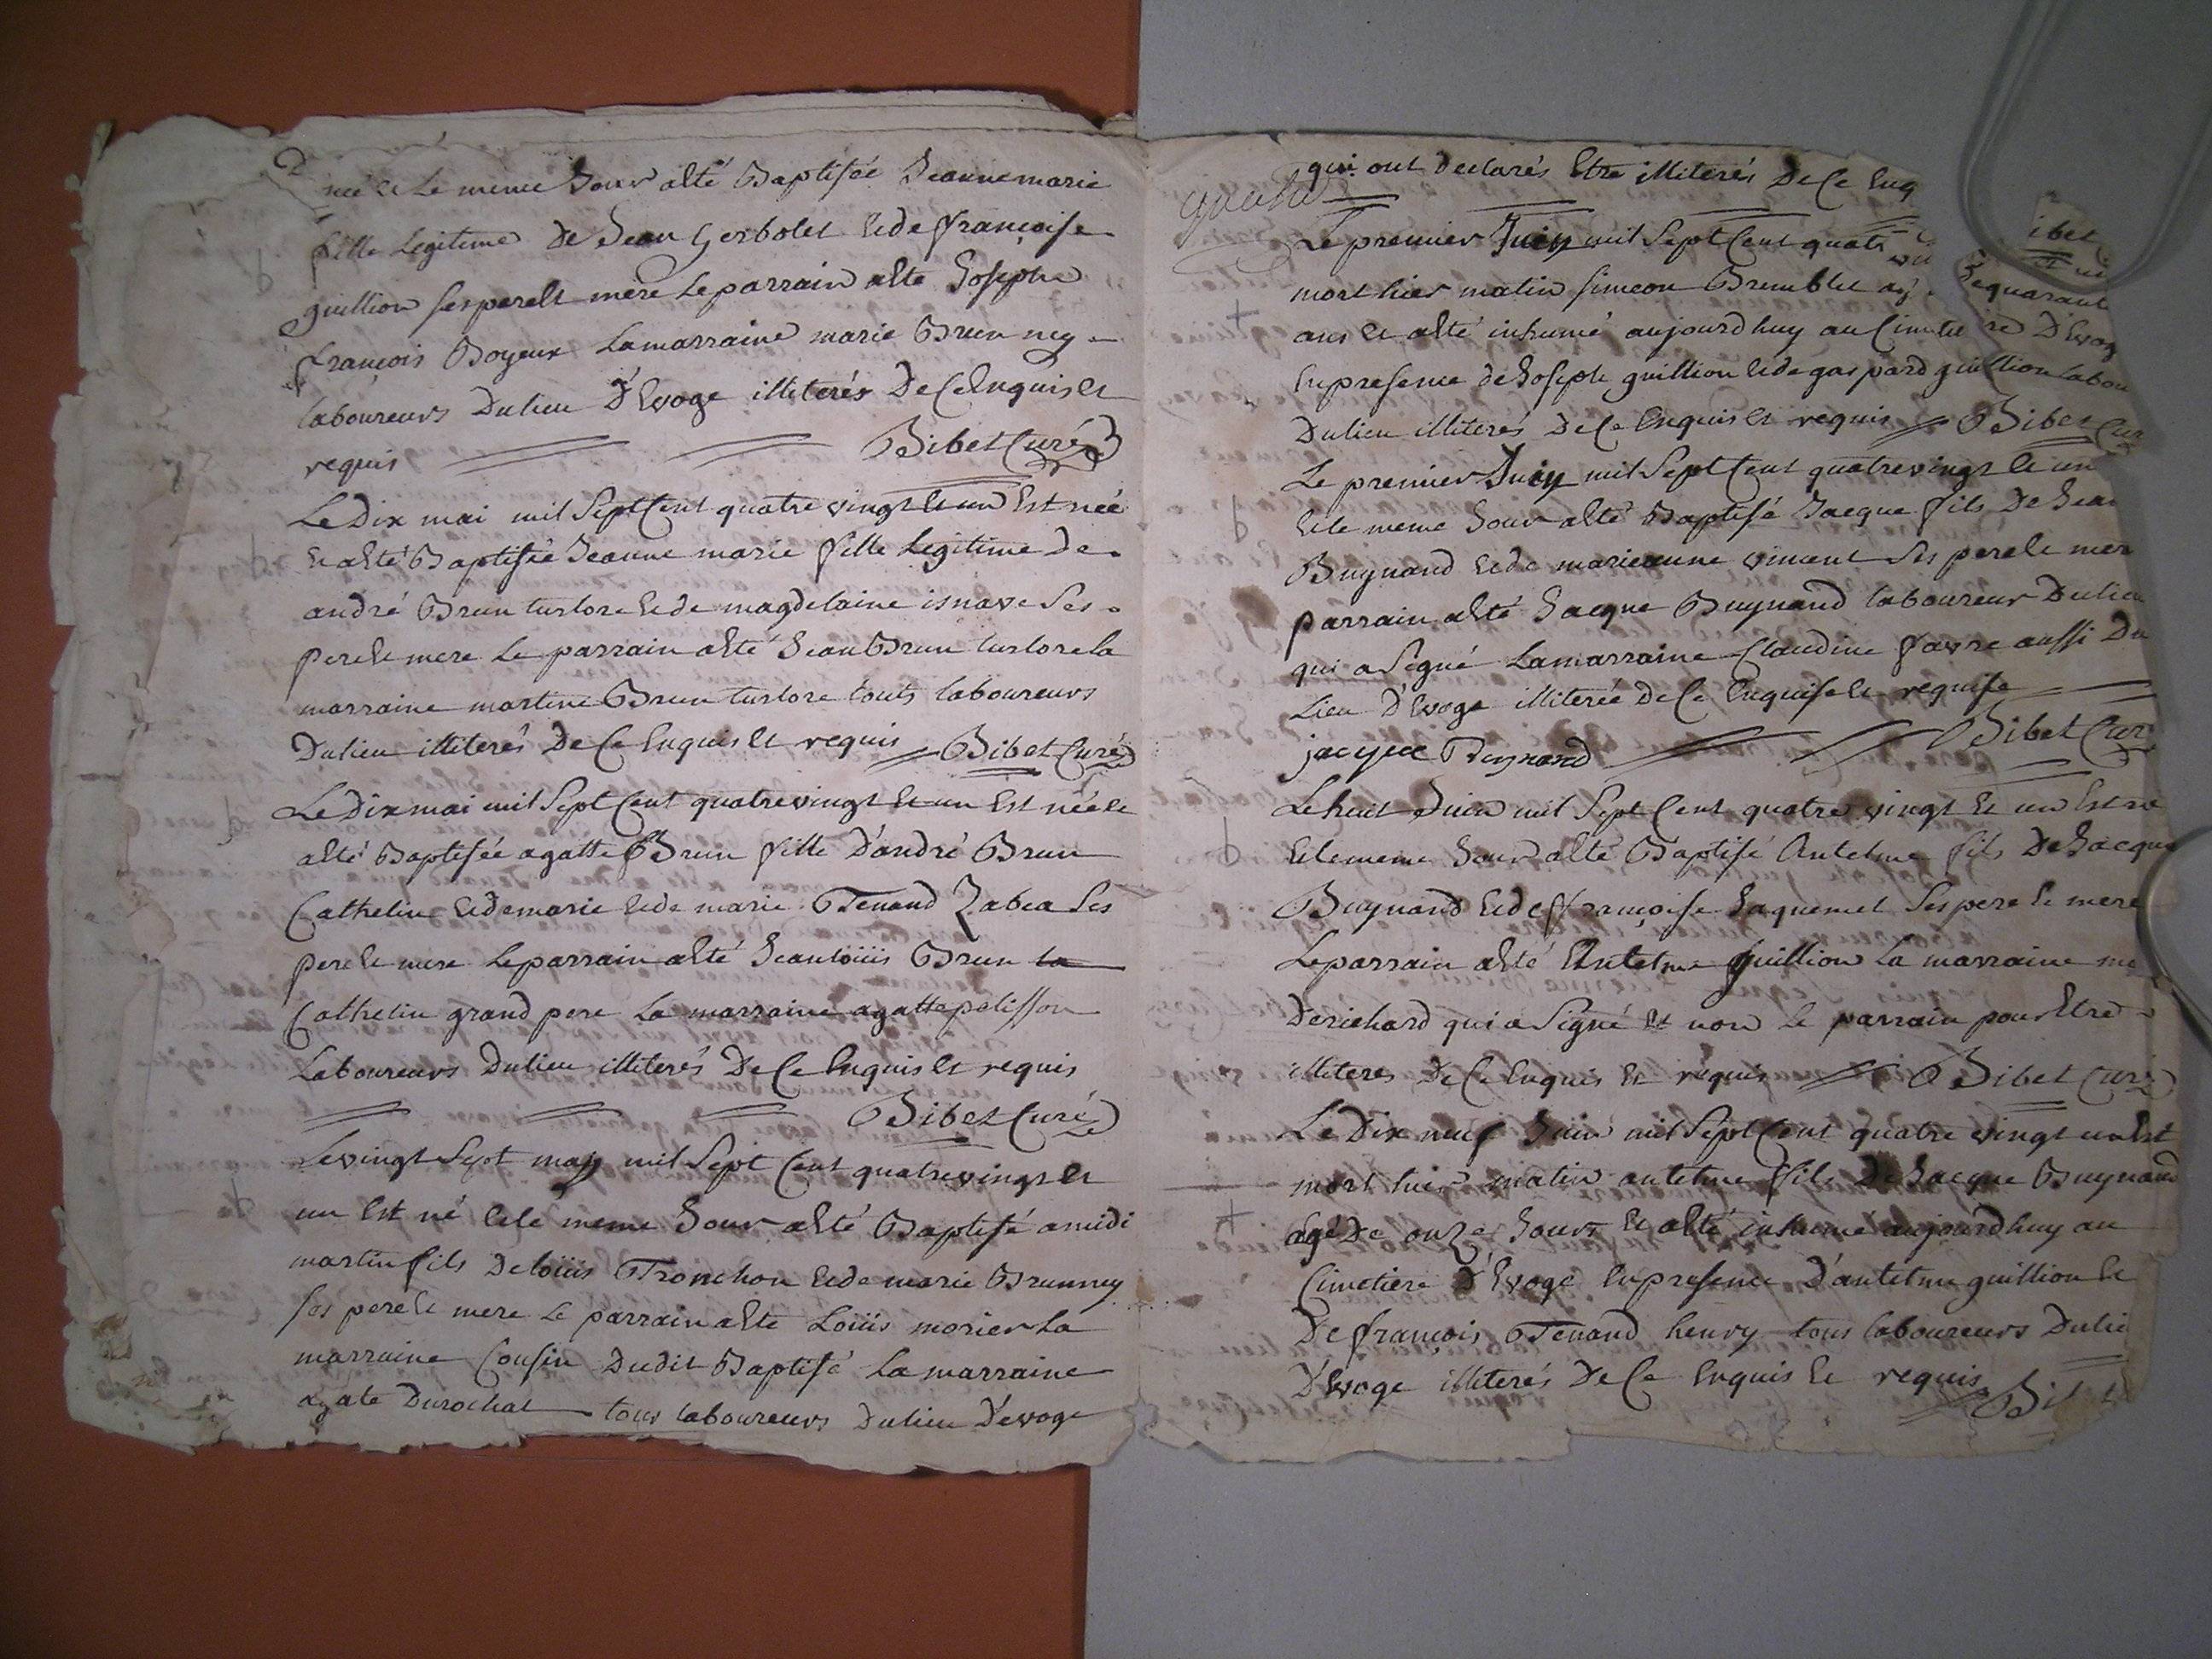 née et le meme Jour a été Baptisée Jeanne marie
fille Legitime De Jean Gerbolet et de françoise
guillion ses pere et mere Le parrain a été Joseph
françois Boyeux La marraine marie Brun ney
laboureurs Du lieu D'Evoge illiterés De Ce Enquis et
requis Bibet Curé
Le Dix mai mil Sept Cent quatre vingt et un Est née
et a été Baptisée Jeanne marie fille Legitime De
andré Brun turlore et de magdelaine isnave Ses
pere et mere Le parrain a été Jean Brun turlore la
marraine martine Brun turlore touts laboureurs
Du lieu illiterés De Ce Enquis et requis Bibet Curé
Le Dix mai mil Sept Cent quatre vingt et un Est née et
a été Baptisée agatte Brun fille D'andré Brun
Cathelin et de marie et de marie Tenand Zabea Ses
pere et mere Le parrain a été Jean loüis Brun la
Cathelin grand pere La marraine agatte pelisson
Laboureurs Du lieu illiterés De Ce Enquis et requis
Bibet Curé
Le vingt Sept may mil Sept Cent quatre vingt et
un Est né et le meme Jour a été Baptisé a midi
martin fils De loüis Tronchon et de marie Brunney
ses pere et mere Le parrain a été Loüis morier La
marraine Cousin Dudit Baptisé La marraine
agate Durochat tous laboureurs Du lieu D'evoge
qui ont Declarés Etre illiterés De Ce Enq
ibet
Le premier Juin mil Sept Cent quatr
mort hier matin simeon Brunblet ag De quarant
ans et a été inhumé aujourdhuy au Cimetiere D'Evog
En presence de Joseph guillion et de gaspard guillion labou
Du lieu illiterés De Ce Enquis et requis Bibet Cur
Le premier Juin mil Sept Cent quatre vingt et un
et le meme Jour a été Baptisé Jacque fils De Jean
Buynand et de marieanne vincent Ses pere et mere
parrain a été Jacque Buynand laboureur Du lieu
qui a Signé La marraine Claudine favre aussi Du
Lieu D'Evoge illiterée De Ce Enquise et requise
jacque Buynand Bibet Cur
Le huit Juin mil Sept Cent quatre vingt et un Est né
et le meme Jour a été Baptisé Antelme fils De Jacque
Buynand et de françoise Jaquemet Ses pere et mere
Le parrain a été Antelme guillion La marraine me
Derichard qui a Signé et non le parrain pour Etre
illiteres De Ce Enquis et requis Bibet Curé
Le Dix neuf Juin mil Sept Cent quatre vingt un Est
mort hier matin antelme fils De Jacque Buynand
agé De onze Jours et a été inhumé aujourdhuy au
Cimetiere D'Evoge En presence D'antelme guillion et
De françois Tenand henry tous laboureurs Du lie
D'Evoge illiterés De Ce Enquis et requis Bibet